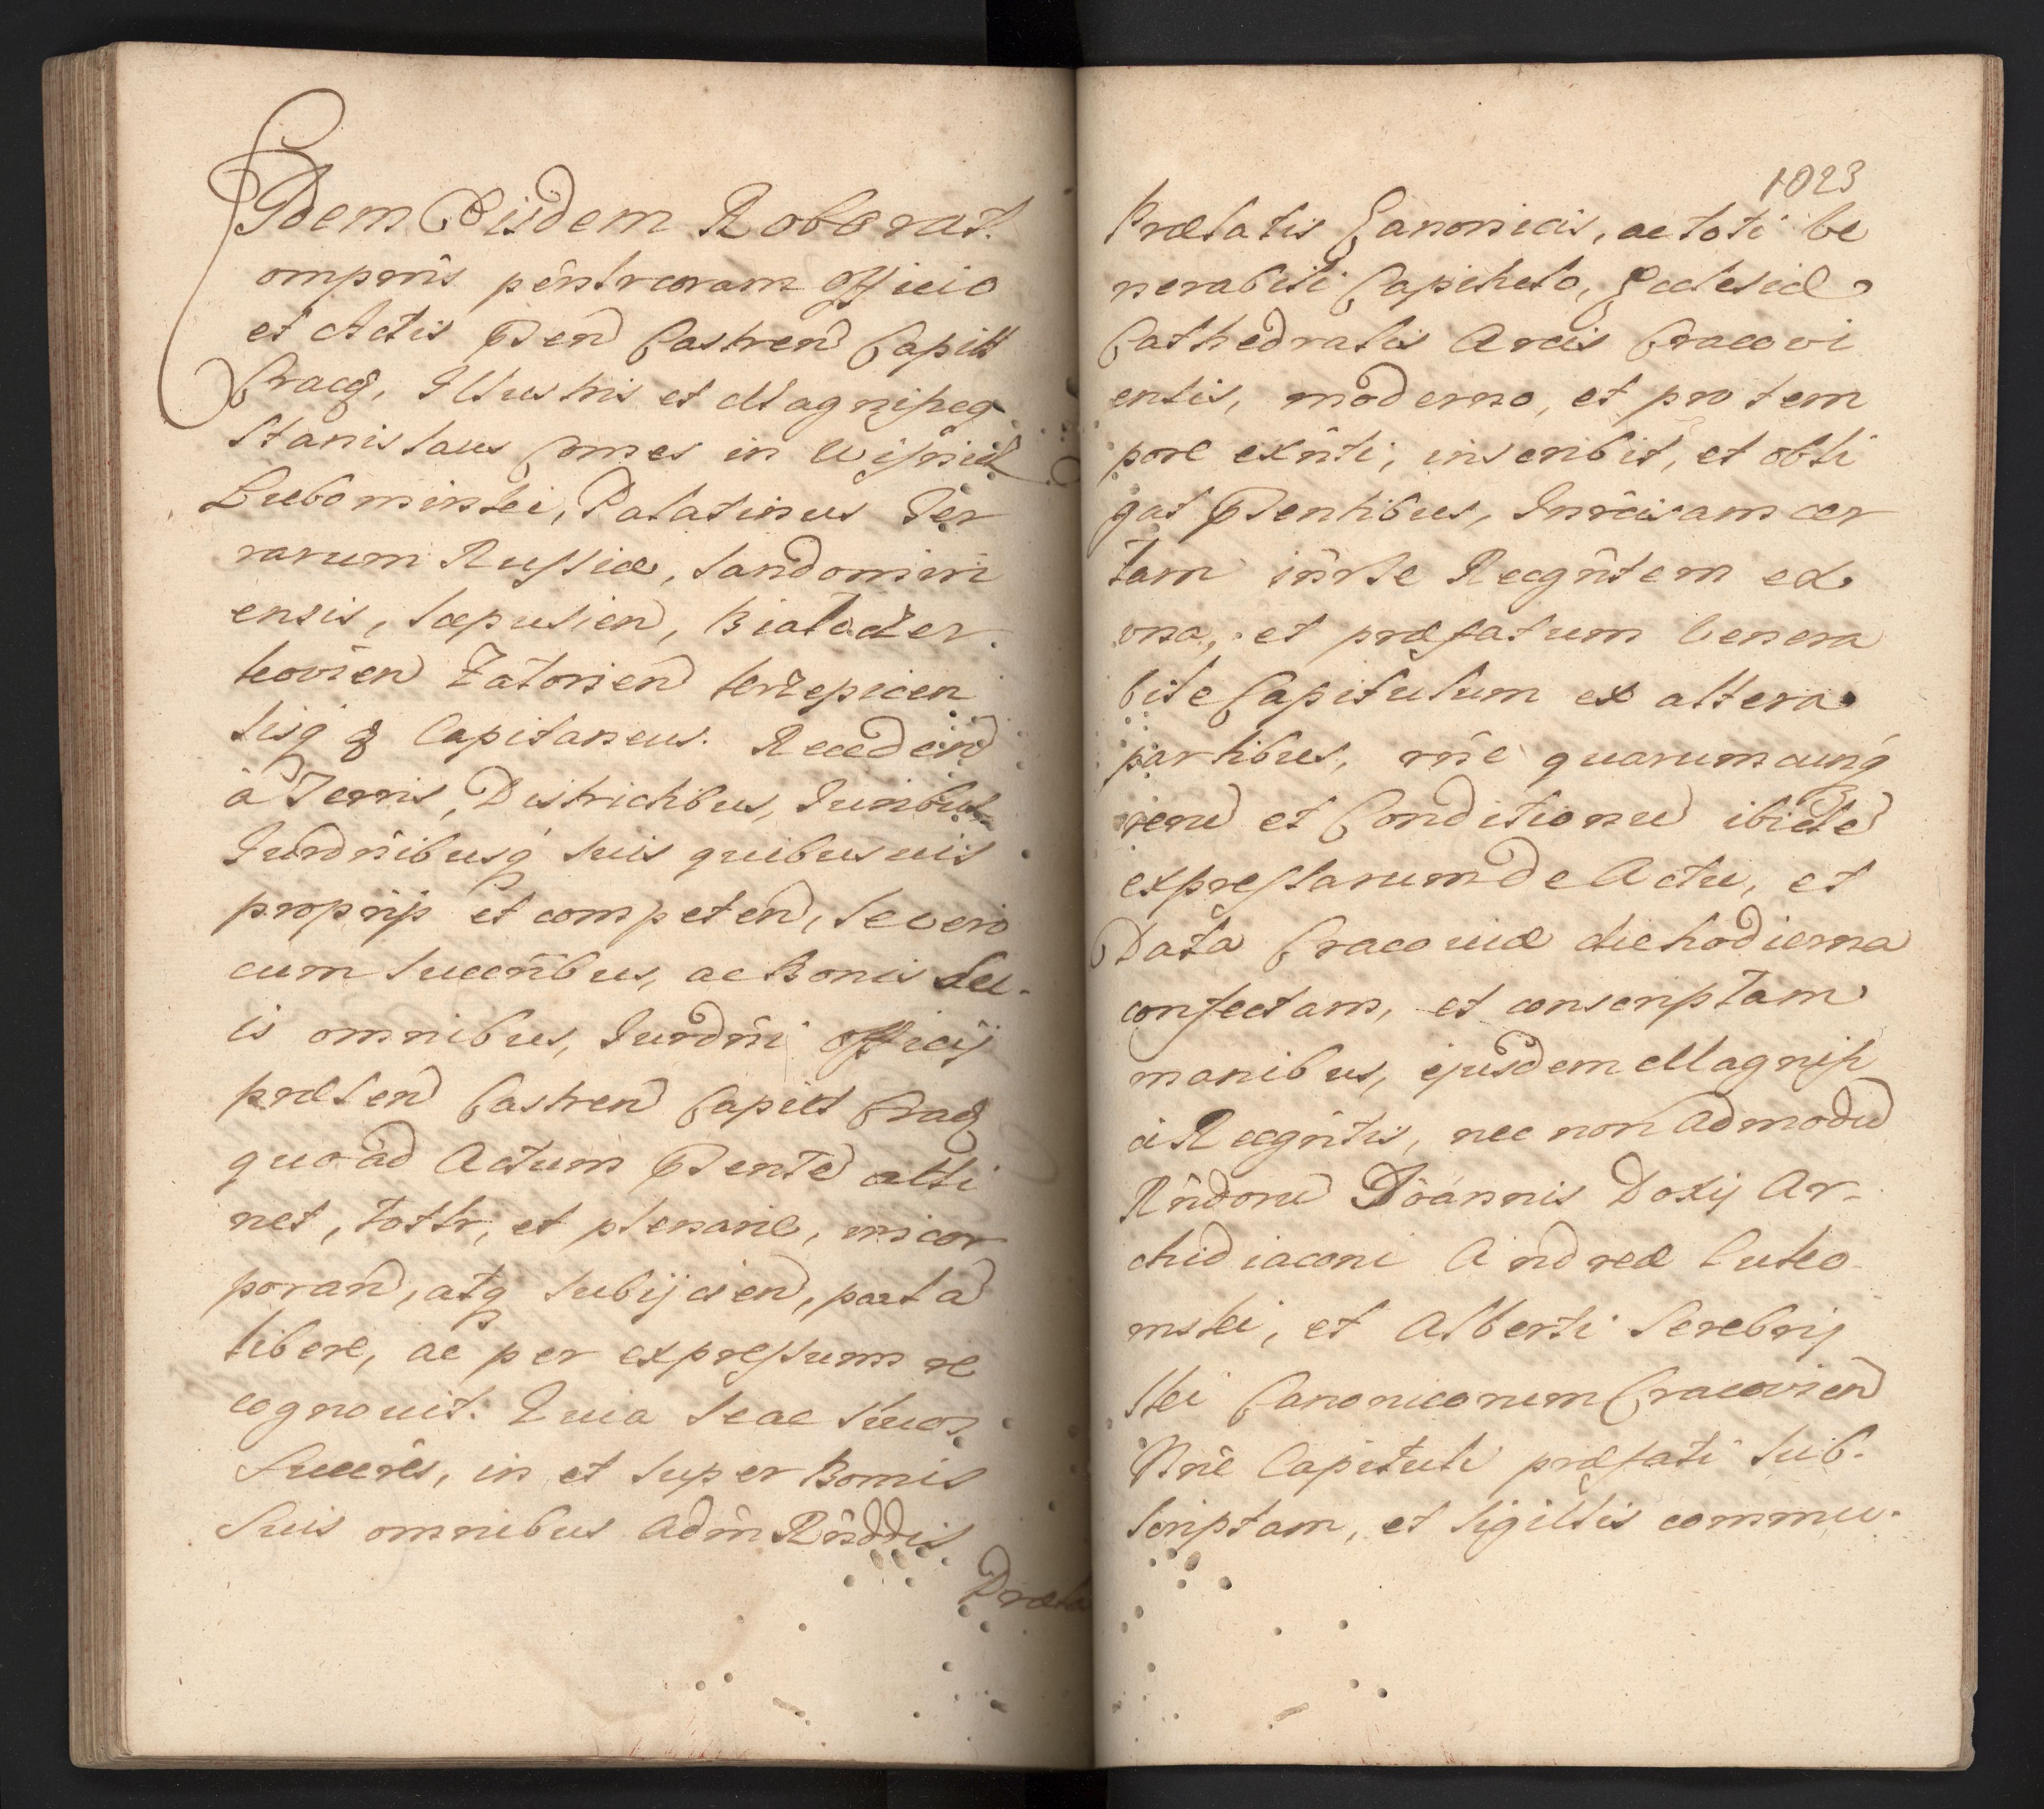 Idem Eisdem Roborat.
ompnis pentrcoram Officio
et Actis Psen Castren Capitt
Cracq, Illustris et Magnificq
Stanislaus Comes in Wisnicz
Lubomirski, Palatinus Ter
rarum Russiæ, Sandomiri
ensis, Scepusien, Bialocer
kovien Zatorien krzepicen
sisq & Capitaneus. Recedend
à Terris, Districtibus, Iuribus
Iurdnibusq suis quibusuis
proprijs et competen, se vero
cum Succribus, ac Bonis Su-
is omnibus, Iurdni Officij
præsen Castren Capitt Cracq
quo ad Actum Psente atti
net, tottr, et plenarie, incor
poran, atq subijcien, palã
libere, ac per expressum re
cognouit. Quia se ac suos
Succres, in et super Bonis
Suis omnibus Adm Rnddis
Præla
1023
Prælatis Canonicis, ac toti Ve
nerabili Capitulo, Ecclesiæ
Cathedralis Arcis Cracovi
ensis, moderno, et pro tem
pore exnti, inscribit, et obli
gat Psentibus, Inrcisam cer
tam inrse Recgntem ex
una, et præfatum Venera
bile Capitulum ex altera
partibus, rne quarumcunq
reru et Conditionu ibide
expressarum de Actu, et
Data Cracouiæ die hodierna
confectam, et conscriptam
manibus, ejusdem Magnifi
ci Recgntis, nec non Admodu
Rndoru Ioannis Doxij Ar-
chidiaconi Andreæ Lutko
mski, et Alberti Serebrij
ski Canonicorum Cracovien
Nne Capituli præfati sub-
scriptam, et sigillis commu-